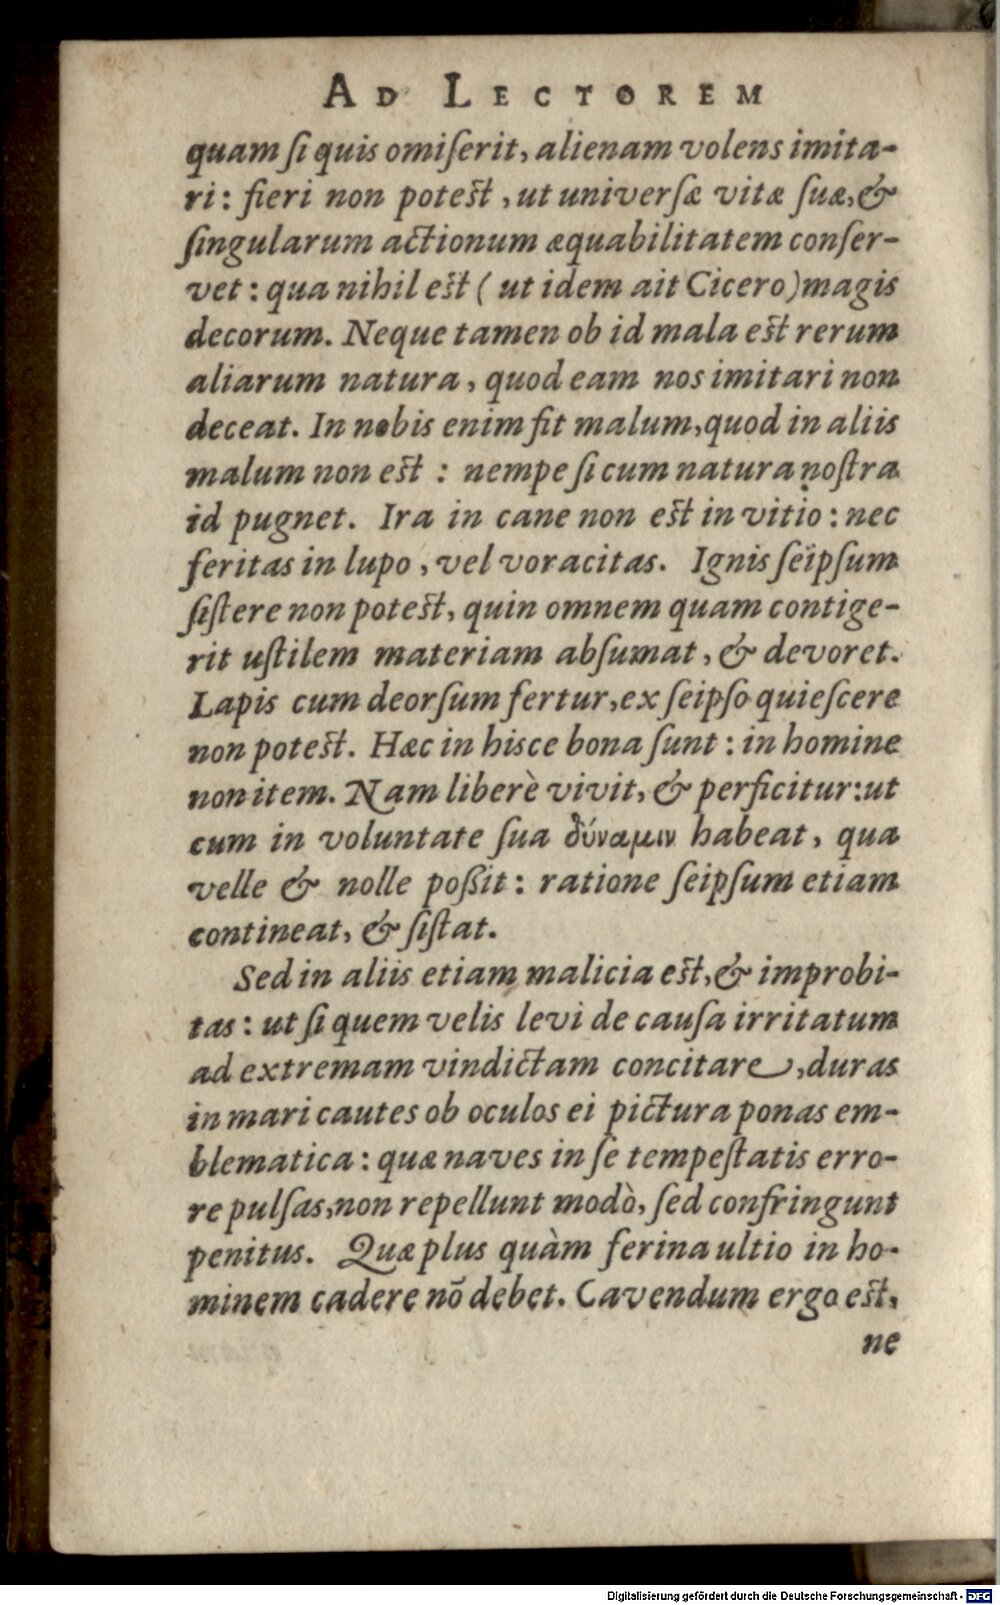 AD LECTOREM
quam ſi quis omiſerit, alienam volens imita-
ri: fieri non poteſt, ut univerſæ vitæ ſuæ, &
ſingularum actionum æquabilitatem conſer-
vet: qua nihil eſt (ut idem ait Cicero) magis
decorum. Neque tamen ob id mala eſt rerum
aliarum natura, quod eam nos imitari non
deceat. In nobis enim fit malum, quod in aliis
malum non eſt: nempe ſi cum natura noſtra
id pugnet. Ira in cane non eſt in vitio: nec
feritas in lupo, vel voracitas. Ignis ſeïpſum
ſiſtere non poteſt, quin omnem quam contige-
rit uſtilem materiam abſumat, & devoret.
Lapis cum deorſum fertur, ex ſeipſo quieſcere
non poteſt. Hæc in hisce bona ſunt: in homine
non item. Nam liberè vivit, & perficitur: ut
cum in voluntate ſua δύναμιν habeat, qua
velle & nolle poßit: ratione ſeipſum etiam
contineat, & ſiſtat.
Sed in aliis etiam malicia eſt, & improbi-
tas: ut ſi quem velis levi de cauſa irritatum
ad extremam vindictam concitare, duras
in mari cautes ob oculos ei pictura ponas em-
blematica: quæ naves in ſe tempeſtatis erro-
re pulſas, non repellunt modò, ſed confringunt
penitus. Quæ plus quàm ferina ultio in ho-
minem cadere nō debet. Cavendum ergo eſt,
ne
Digitalisierung gefördert durch die Deutsche Forschungsgemeinschaft - DFG